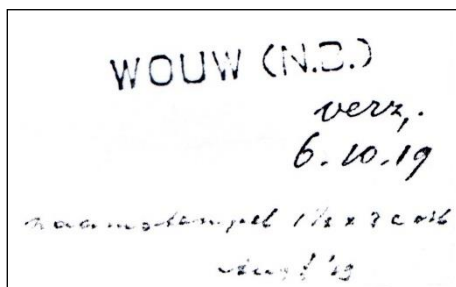 WOUW (N.B.)
verz.
6.10.19
naamstempel